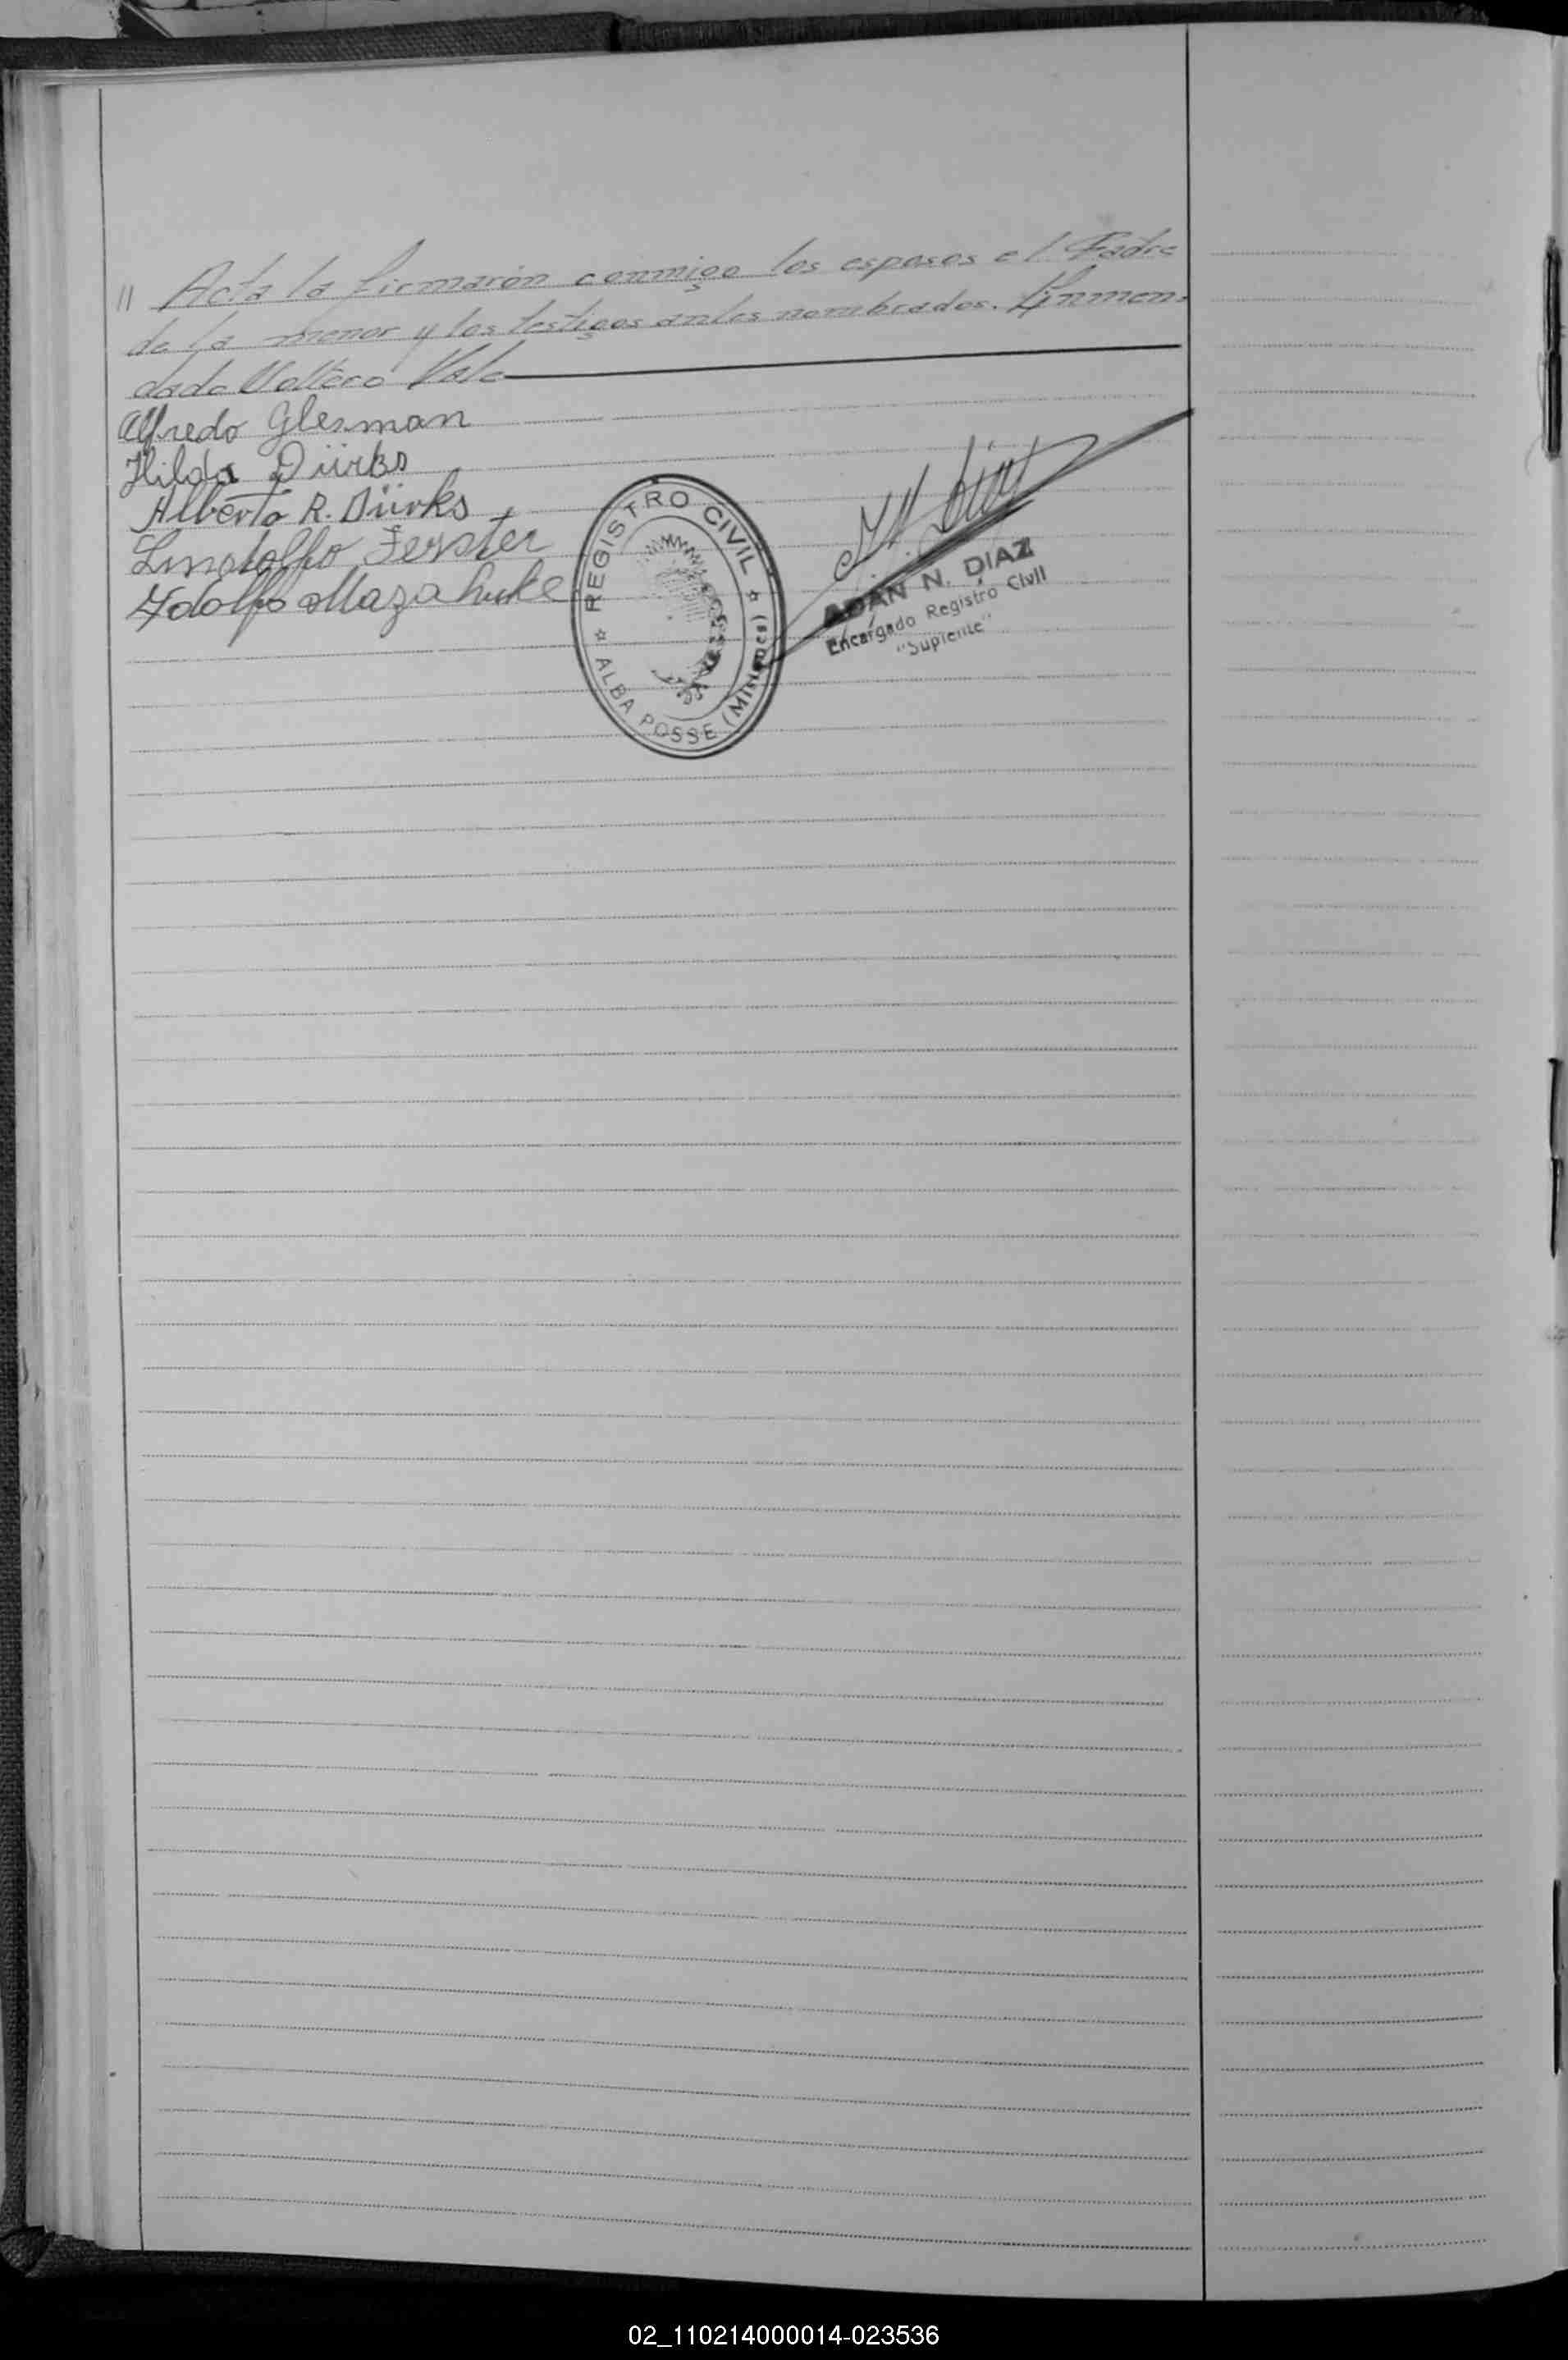 // Acta la firmarón conmigo los esposos el Padre
de la menor y los testigos antes nombrados. Enmen-
dado Soltero Vale
Alfredo Glesman
Hilda Dürks
Alberto R. Dürks
Lindolfo Ferster
Adolfo
REGISTRO CIVIL
ALBA POSSE (Misiones)
ADÁN N. DÍAZ
Encargado Registro Civil
"Suplente"
02_110214000014-023536